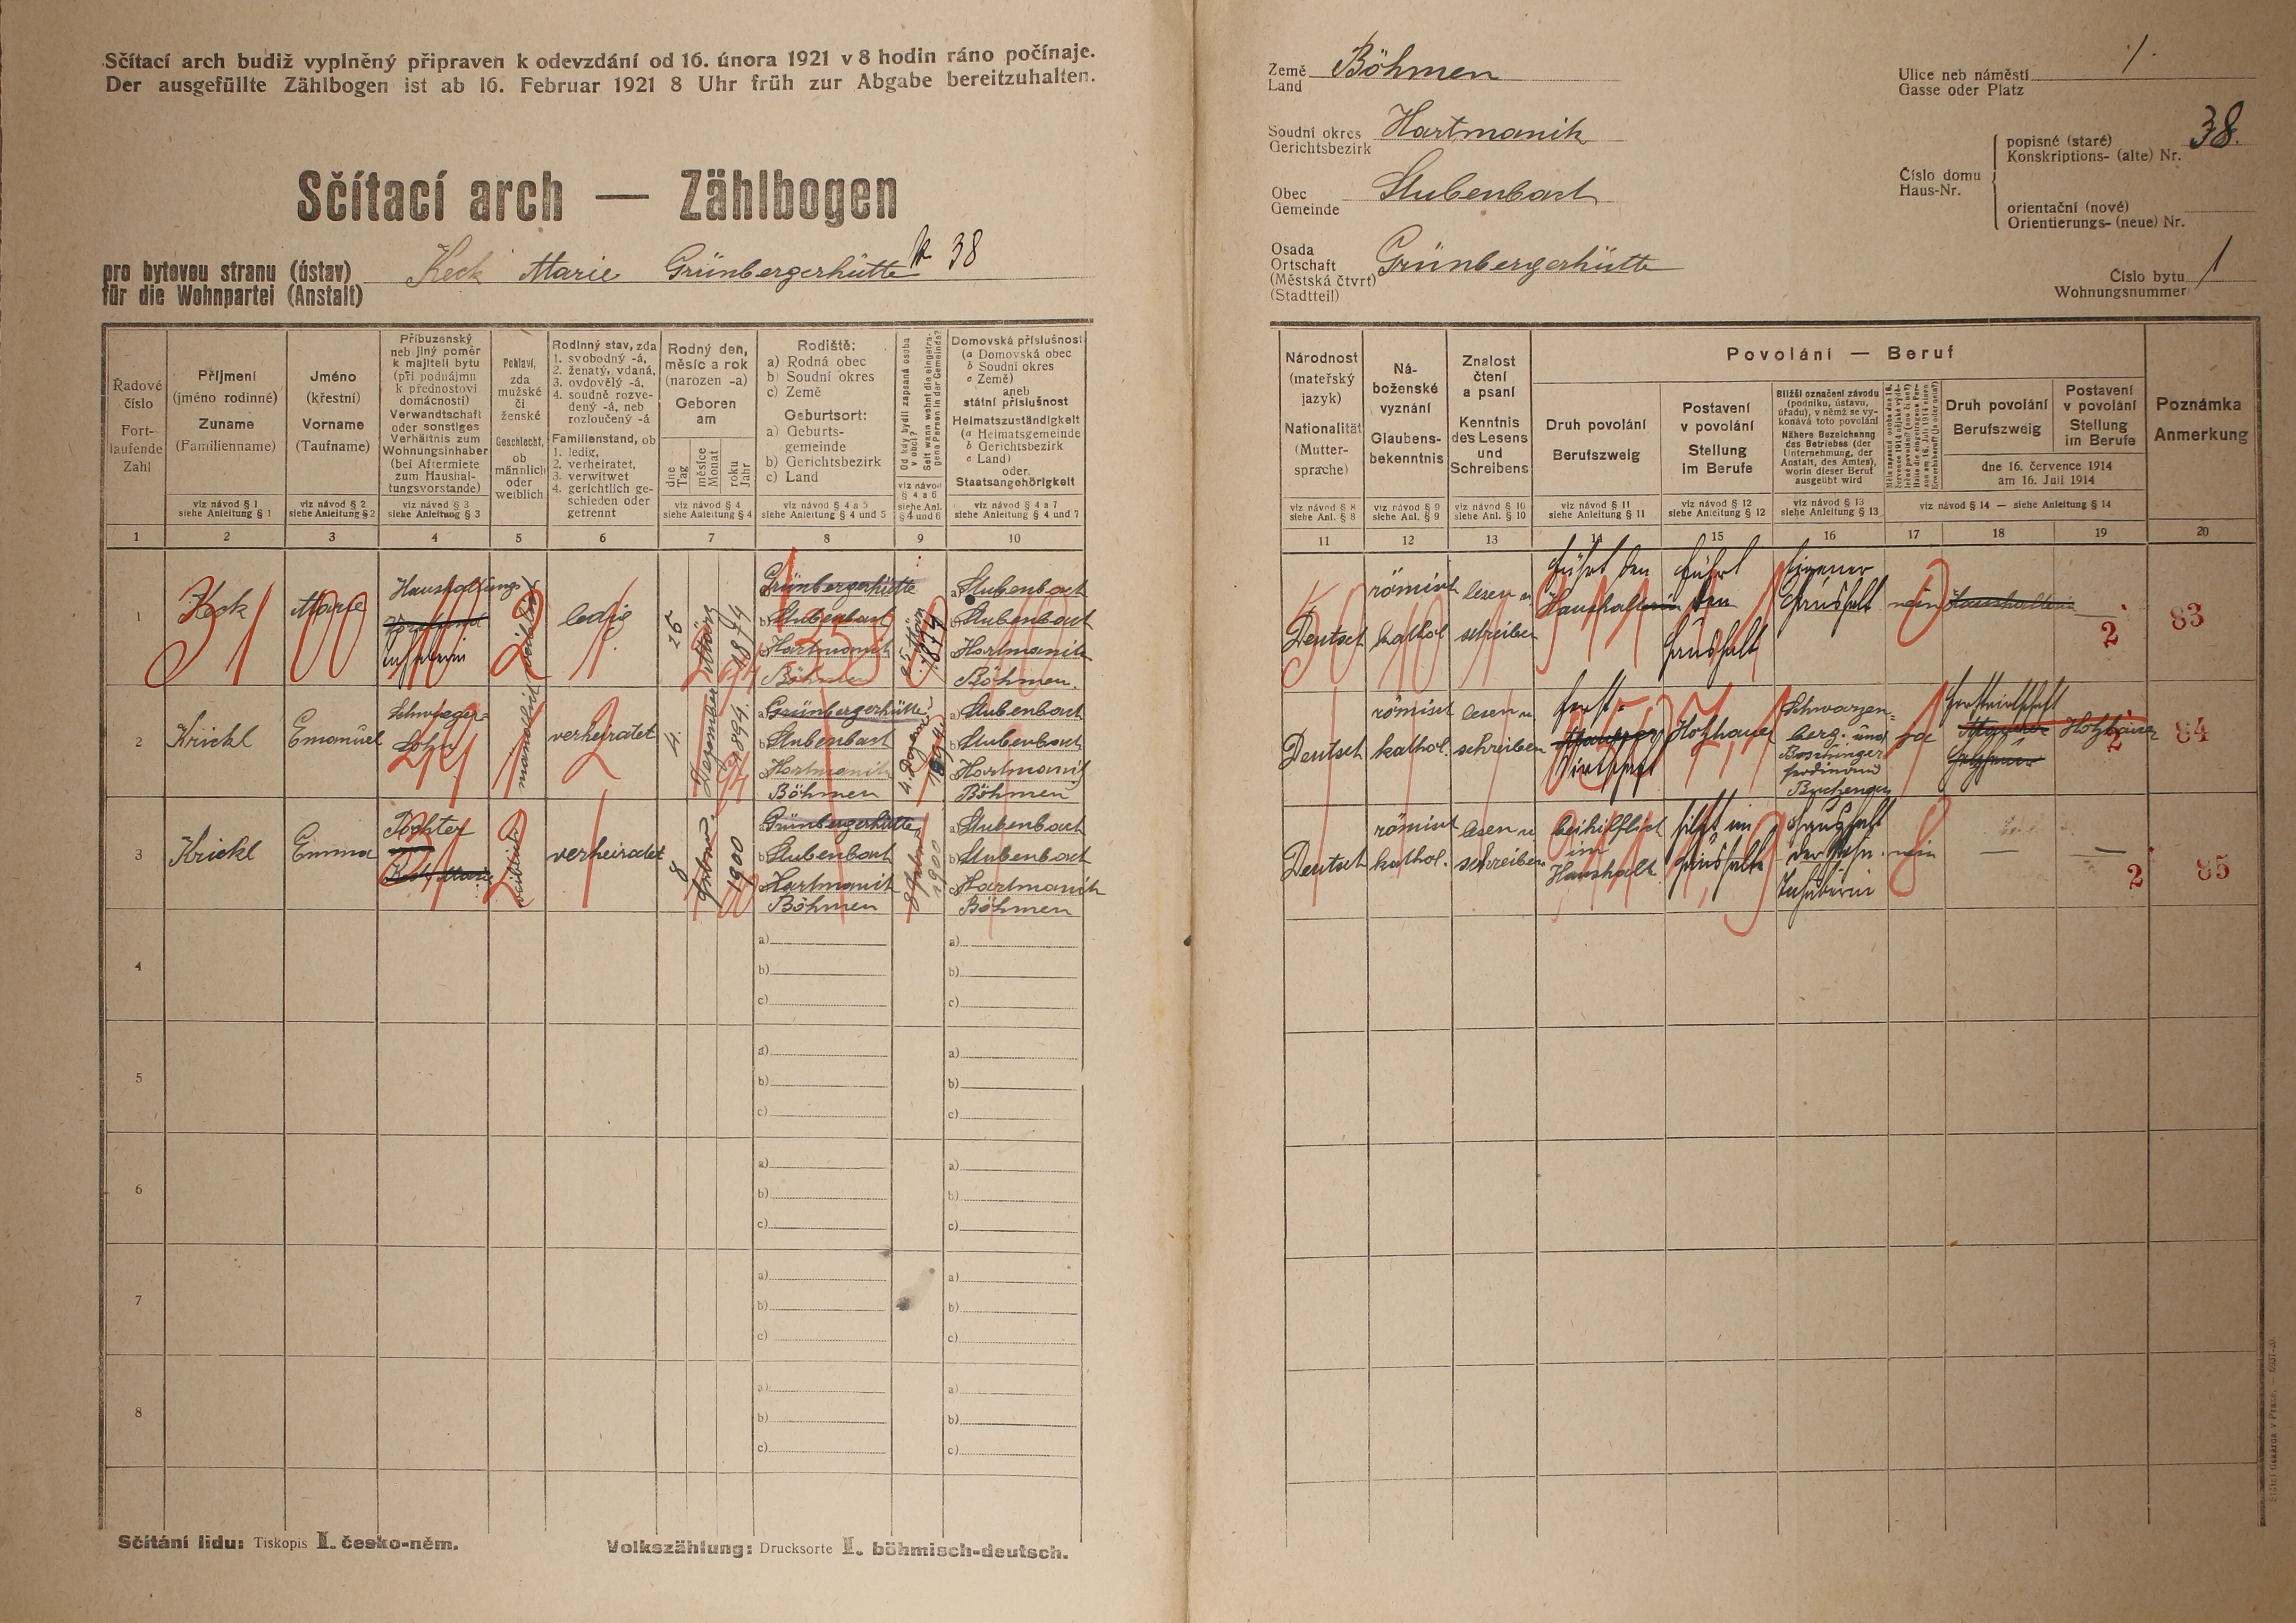 Sčítací arch budiž vyplněný připraven k odevzdání od 16. února 1921 v 8 hodin ráno počínaje.
Der ausgefüllte Zählbogen ist ab 16. Februar 1921 8 Uhr früh zur Abgabe bereitzuhalten.
Sčítací arch — Zählbogen
pro bytovou stranu (ústav)
für die Wohnpartei (Anstalt)
Keck Marie Grünbergerhütte N 38
Řadové číslo
Fortlaufende Zahl
1
Příjmení
(jméno rodinné)
Zuname
(Familienname)
viz návod § 1
siehe Anleitung § 1
2
Jméno
(křestní)
Vorname
(Taufname)
viz návod § 2
siehe Anleitung § 2
3
Příbuzenský
neb jiný poměr
k majiteli bytu
(při podnájmu
k přednostovi
domácnosti)
Verwandtschaft
oder sonstiges
Verhältnis zum
Wohnungsinhaber
(bei Aftermiete
zum Haushal-
tungsvorstande)
viz návod § 3
siehe Anleitung § 3
4
Pohlaví,
zda
mužské
či
ženské
Geschlecht,
ob
männlich
oder
weiblich
5
Rodinný stav, zda
1. svobodný -á,
2. ženatý, vdaná,
3. ovdovělý -á,
4. soudně rozve-
dený -á, neb
rozloučený -á
Familienstand, ob
1. ledig,
2. verheiratet,
3. verwitwet
4. gerichtlich ge-
schieden oder
getrennt
6
Rodný den,
měsíc a rok
(narozen -a)
Geboren
am
dne
Tag
měsíce
Monat
roku
Jahr
viz návod § 4
siehe Anleitung § 4
7
Rodiště:
a) Rodná obec
b) Soudní okres
c) Země
Geburtsort:
a) Geburts-
gemeinde
b) Gerichtsbezirk
c) Land
viz návod § 4 a 5
siehe Anleitung § 4 und 5
8
Od kdy bydlí zapsaná osoba
v obci?
Seit wann wohnt die eingetra-
gene Person in der Gemeinde?
viz návod
§ 4 a 6
siehe Anl.
§ 4 und 6
9
Domovská příslušnost
(a Domovská obec
b Soudní okres
c Země)
aneb
státní příslušnost
Heimatszuständigkeit
(a Heimatsgemeinde
b Gerichtsbezirk
c Land)
oder
Staatsangehörigkeit
viz návod § 4 a 7
siehe Anleitung § 4 und 7
10
1
Keck
Marie
Haushaltungs
weiblich
ledig
25
März
1874
Grünbergerhütte
Stubenbach
Hartmanik
Böhmen
25 März
1874
Stubenbach
Stubenbach
Hartmanik
Böhmen.
2
Krickl
Emanuel
Schwieger=
sohn
männlich
verheiratet
4.
Dezember
1894.
Grünbergerhütte
Stubenbach
Hartmanik
Böhmen
4. Dezember
1894.
Stubenbach
Stubenbach
Hartmanik
Böhmen
3
Krickl
Emma
Tochter
Keck Marie
weiblich
verheiratet
8
1900
Grünbergerhütte
Stubenbach
Hartmanik
Böhmen
1900
Stubenbach
Stubenbach
Hartmanik
Böhmen
4
a)
b)
c)
a)
b)
c)
5
a)
b)
c)
a)
b)
c)
6
a)
b)
c)
a)
b)
c)
7
a)
b)
c)
a)
b)
c)
8
a)
b)
c)
a)
b)
c)
Sčítání lidu: Tiskopis I. česko-něm.
Volkszählung: Drucksorte I. böhmisch-deutsch.
Země
Land
Böhmen
Soudní okres
Gerichtsbezirk
Hartmanik
Obec
Gemeinde
Stubenbach
Osada
Ortschaft
(Městská čtvrť)
(Stadtteil)
Grünbergerhütte
Ulice neb náměstí
Gasse oder Platz
Číslo domu
Haus-Nr.
popisné (staré)
Konskriptions- (alte) Nr.
38.
orientační (nové)
Orientierungs- (neue) Nr.
Číslo bytu
Wohnungsnummer
1
Národnost
(mateřský
jazyk)
Nationalität
(Mutter-
sprache)
viz návod § 8
siehe Anl. § 8
11
Ná-
boženské
vyznání
Glaubens-
bekenntnis
viz návod § 9
siehe Anl. § 9
12
Znalost
čtení
a psaní
Kenntnis
des Lesens
und
Schreibens
viz návod § 10
siehe Anl. § 10
13
Povolání — Beruf
Druh povolání
Berufszweig
viz návod § 11
siehe Anleitung § 11
14
Postavení
v povolání
Stellung
im Berufe
viz návod § 12
siehe Anleitung § 12
15
Bližší označení závodu
(podniku, ústavu,
úřadu), v němž se vy-
konává toto povolání
Nähere Bezeichnung
des Betriebes (der
Unternehmung, der
Anstalt, des Amtes),
worin dieser Beruf
ausgeübt wird
viz návod § 13
siehe Anleitung § 13
16
17
Druh povolání
Berufszweig
Postavení
v povolání
Stellung
im Berufe
dne 16. července 1914
am 16. Juli 1914
viz návod § 14 — siehe Anleitung § 14
18
19
Poznámka
Anmerkung
20
Deutsch
römisch
kathol.
lesen u
schreiben
führt den
Haushalt
führt
den
Haushalt
eigener
Haushalt
nein
2
83
Deutsch
römisch
kathol.
lesen u
schreiben
Forst=
Wirtschaft
Holzhauer
Schwarzen=
berg. und
ja
Forstwirtschaft
Holzhauer
2
84
Deutsch
römisch
kathol.
lesen u
schreiben
beihilflich
im
Haushalt
hilft im
Haushalte
Haushalt
der Wohn.
Inhaberin
nein
—
—
2
85